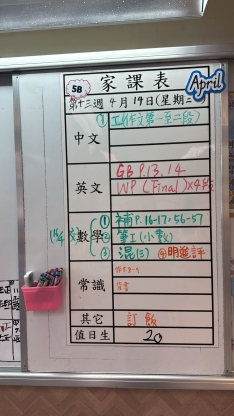 5B 家課表 April
第十三週 4月19日(星期二
中文 ① 工(作文第一至二段)
英文 GB P.13,14
WP (Final)×4
① 補P.16-17,56-57
數學 ② 筆工(小數)
③ 混(三) ④明進評
常識
其它 訂飯
值日生 20